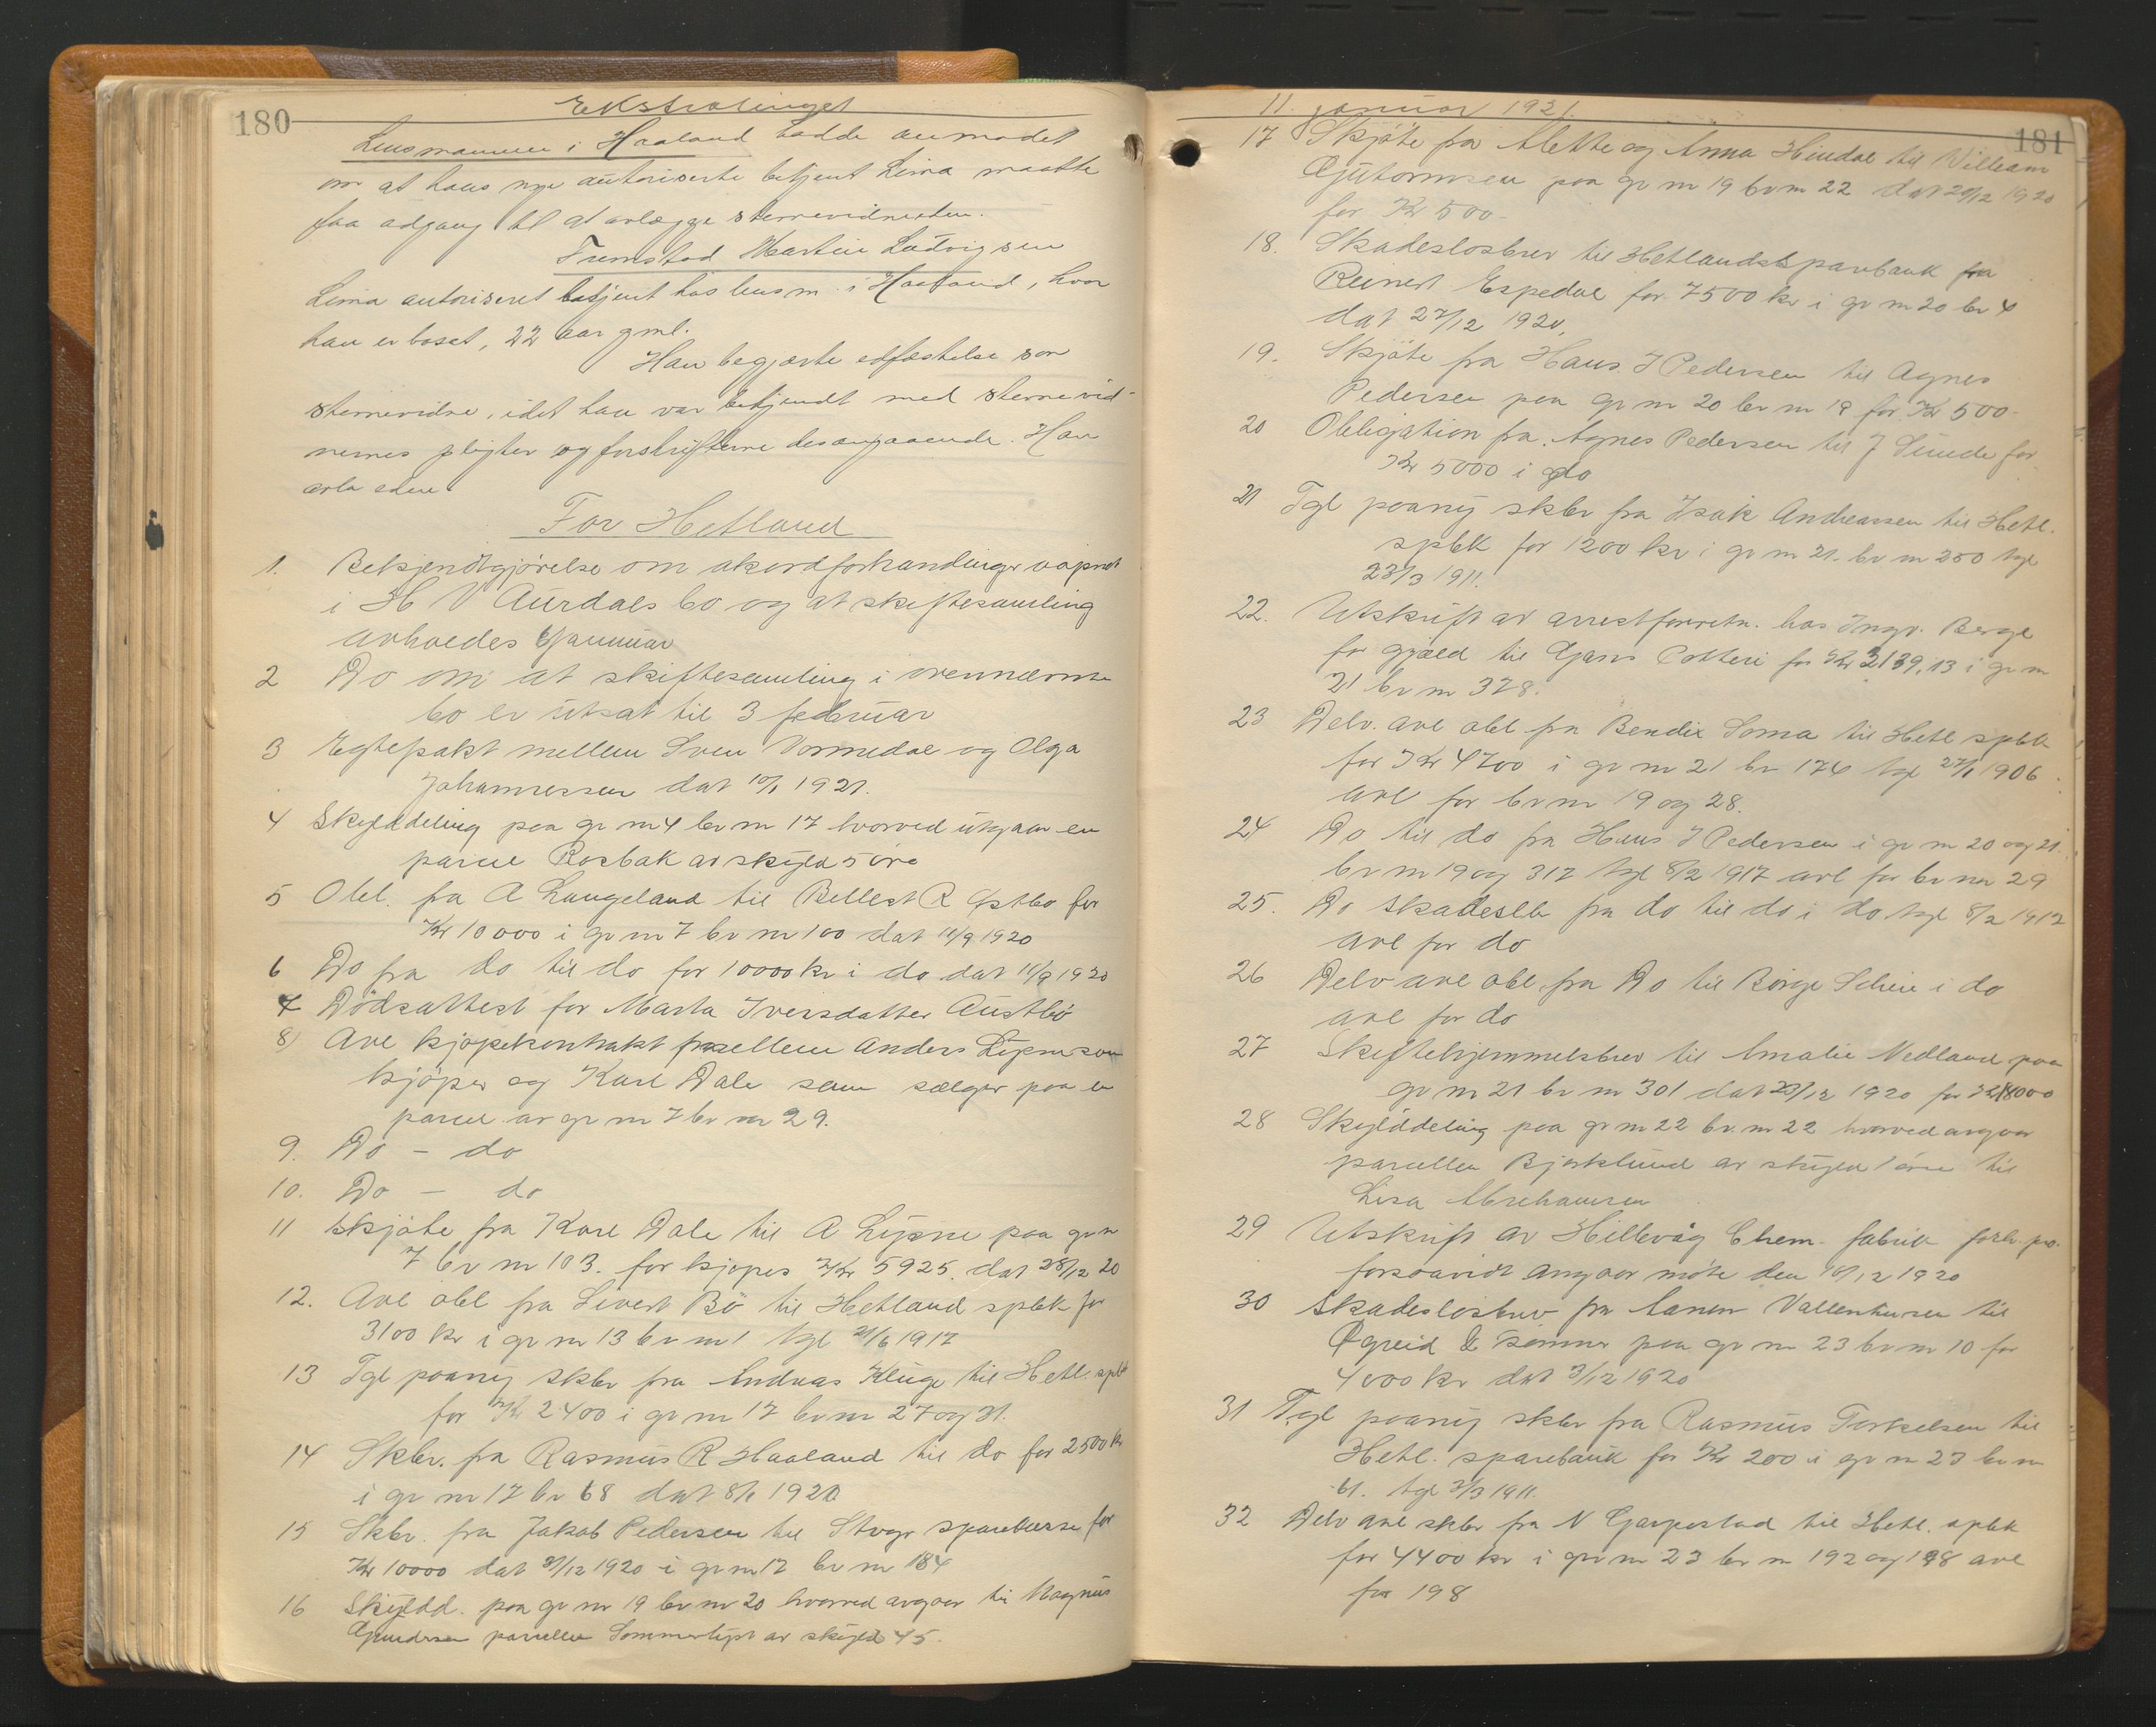 180
Ekstratinget
Lensmannen i Haaland hadde anmodet
om at hans nye autoriserte betjent Lima maatte
faa adgang til at avlægge stevnevidneeden.
Fremstod Martin Ludvigsen
Lima autoriseret betjent hos lensm. i Haaland, hvor
han er bosat, 22 aar gml.
Han begjærte edfæstelse som
stevnevidne, idet han var bekjendt med stevnevid-
nernes pligter og forskrifterne desangaaende. Han
avla eden.
For Hetland
1. Bekjendtgjörelse om akordforhandlinger aapnet
i H V Aurdals bo og at skiftesamling
avholdes januar
2 Do om at skiftesamling i ovennævnte
bo er utsat til 3 februar
3 Egtepakt mellem Sven Vormedal og Olga
Johannessen dat 10/1 1921.
4 Skylddeling paa gr nr 4 br nr 17 hvorved utgaar en
parcel Rosbak av skyld 5 öre
5 Obl. fra A Langeland til Bellest R Östbö for
Kr 10000 i gr nr 7 br nr 100 dat 11/9 1920
6 Do fra do til do for 10000 kr i do dat 11/9 1920
7 Dödsattest for Marta Iversdatter Austbö
8) Avl kjöpekontrakt mellem Anders Lipne som
kjöper og Karl Dale som sælger paa en
parcel av gr nr 7 br nr 29.
9. Do – do
10. Do – do
11 Skjöte fra Karl Dale til A Lipne paa gr nr
7 br nr 103. for kjöpes Kr 5925. dat 28/12 20
12. Avl obl fra Sivert Bö til Hetland spbk for
3100 kr i gr nr 13 br nr 1 tgl 21/6 1917
13 Tgl paany skbr fra Andreas Kluge til Hetl. spbk
for Kr 2400 i gr nr 17 br nr 27 og 31.
14 Skbr. fra Rasmus R Haaland til do for 2500 kr
i gr nr 17 br 68 dat 8/1 1921
15 Skbr. fra Jakob Pedersen til Stvgr sparebørse for
Kr 10000 dat 31/12 1920 i gr nr 17 br nr 184
16 Skyldd. paa gr nr 19 br nr 20 hvorved avgaar til Magnus
Gundersen parcellen Sommerlyst av skyld 45.
11. januar 1921.
181
17 Skjöte fra Mette og Anna Hindal til William
Gutormsen paa gr nr 19 br nr 22 dat 29/12 1920
for Kr 500-
18. Skadeslosbrev til Hetlands sparebank fra
Reinert Espedal for 7500 kr i gr nr 20 br 4
dat 27/12 1920.
19. Skjöte fra Hans J Pedersen til Agnes
Pedersen paa gr nr 20 br nr 19 for Kr 500-
20 Obligation fra Agnes Pedersen til J Sunde for
Kr 5000 i do
21 Tgl paany skbr fra Isak Andreassen til Hetl.
spbk for 1200 kr i gr nr 21. br nr 250 tgl
23/3 1911.
22. Utskrift av arrestforretn. hos Ingv. Berge
for gjæld til Gjans Potteri for Kr 2139,13 i gr nr
21 br nr 378.
23 Delv. avl obl fra Bendix Soma til Hetl spbk
for Kr 4700 i gr nr 21 br 174 tgl 27/1 1906
avl for br nr 19 og 28.
24 Do til do fra Hans J Pedersen i gr nr 20 og 21.
br nr 19 og 317 tgl 8/2 1917 avl for br nr 29
25. Do skadeslb fra do til do i do tgl 8/2 1912
avl for do
26 Delv avl obl fra Do til Börge Scheie i do
avl for do
27 Skiftehjemmelsbrev til Amalie Nedland paa
gr nr 21 br nr 301 dat 23/12 1920 for Kr 18000
28 Skylddeling paa gr nr 22 br. nr 22 hvorved avgaar
parcellen Bjorklund av skyld 1 öre til
Lisa Abrahamsen
29 Utskrift av Hillevåg Chem. fabrik forh. pro.
forsaavidt angaar möte den 10/12 1920
30 Skadeslösbrev fra Vallenhusen til
Ögreid & sönner paa gr nr 23 br nr 10 for
4000 kr dat 3/12 1920
31 Tgl paany skbr fra Rasmus Torkelsen til
Hetl. sparebank for Kr 200 i gr nr 23 br nr
61. tgl 3/3 1911.
32 Delv avl skbr fra N Garpestad til Hetl. spbk
for 4400 kr i gr nr 23 br nr 192 og 198 avl
for 198